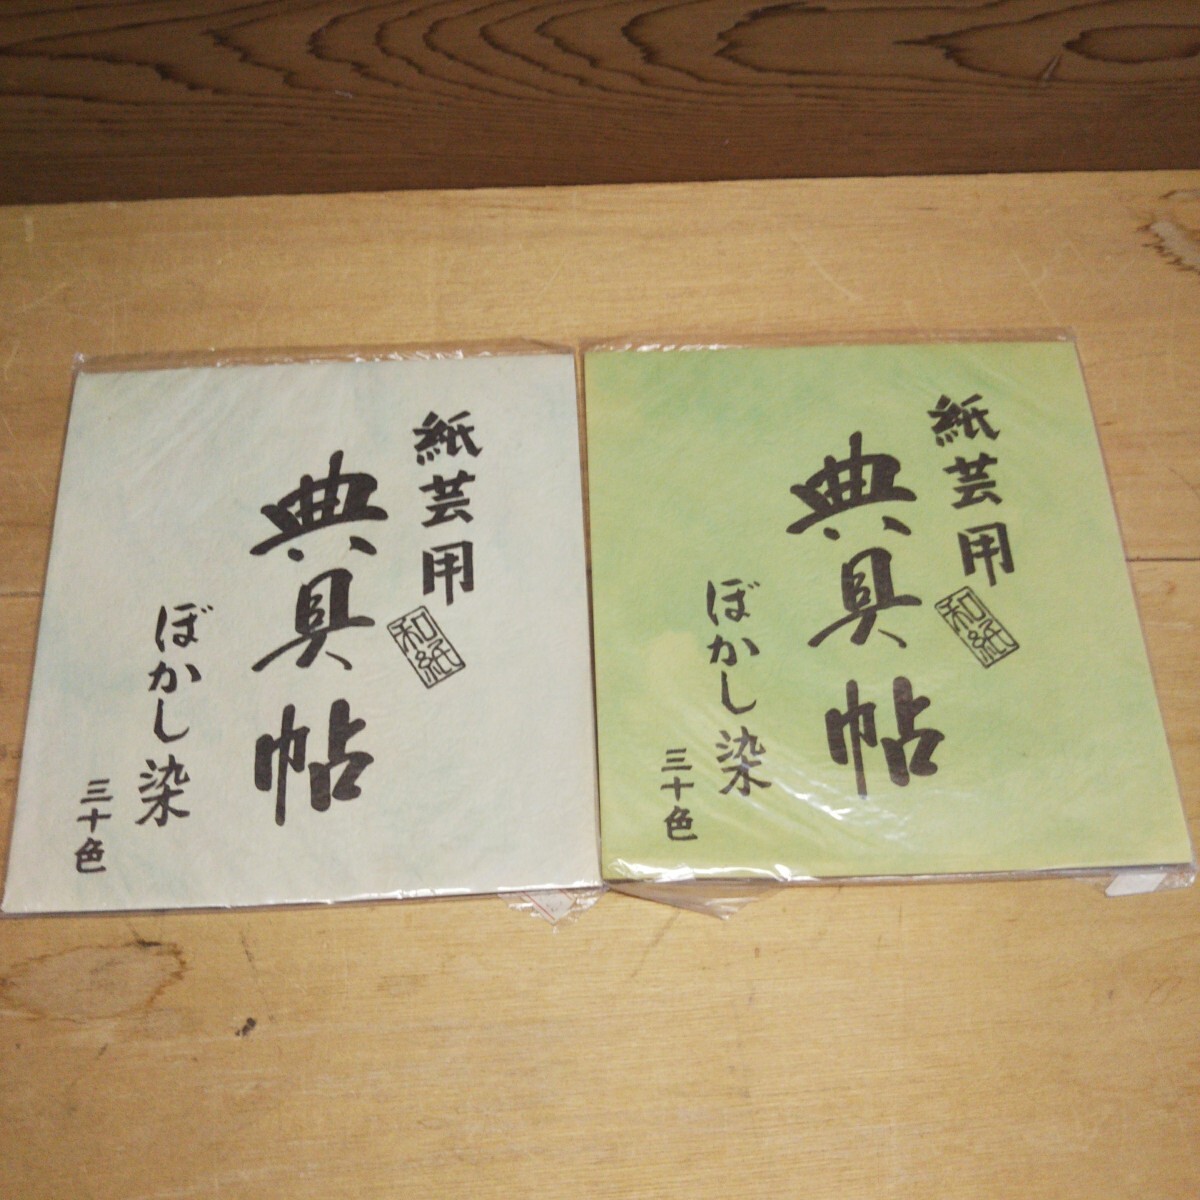 紙芸用
和紙
典具帖
ぼかし染
三十色
紙芸用
和紙
典具帖
ぼかし染
三十色